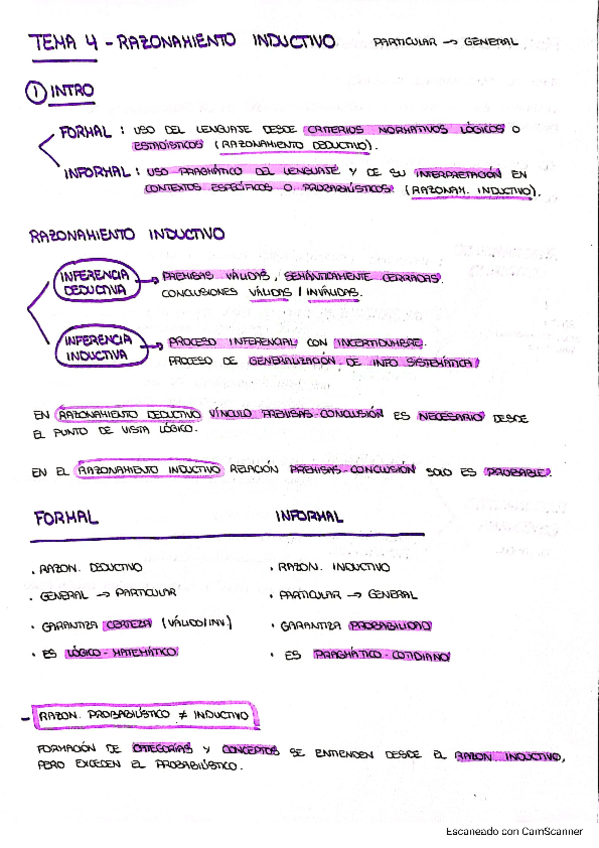 TEMA 4 - RAZONAMIENTO INDUCTIVO PARTICULAR → GENERAL
① INTRO
FORMAL : USO DEL LENGUAJE DESDE CRITERIOS NORMATIVOS LÓGICOS O
ESTADÍSTICOS (RAZONAMIENTO DEDUCTIVO).
INFORMAL : USO PRAGMÁTICO DEL LENGUAJE Y DE SU INTERPRETACIÓN EN
CONTEXTOS ESPECÍFICOS O PROBABILÍSTICOS. (RAZONAM. INDUCTIVO).
RAZONAMIENTO INDUCTIVO
INFERENCIA
DEDUCTIVA
→ PREMISAS VÁLIDAS, SEMÁNTICAMENTE CERRADAS.
CONCLUSIONES VÁLIDAS / INVÁLIDAS.
INFERENCIA
INDUCTIVA
→ PROCESO INFERENCIAL CON INCERTIDUMBRE.
PROCESO DE GENERALIZACIÓN DE INFO SISTEMÁTICA.
EN RAZONAMIENTO DEDUCTIVO VÍNCULO PREMISAS-CONCLUSIÓN ES NECESARIO DESDE
EL PUNTO DE VISTA LÓGICO.
EN EL RAZONAMIENTO INDUCTIVO RELACIÓN PREMISAS-CONCLUSIÓN SOLO ES PROBABLE.
FORMAL INFORMAL
. RAZON. DEDUCTIVO . RAZON. INDUCTIVO
. GENERAL → PARTICULAR . PARTICULAR → GENERAL
. GARANTIZA CERTEZA (VÁLIDO/INV.) . GARANTIZA PROBABILIDAD
. ES LÓGICO-MATEMÁTICO . ES PRAGMÁTICO-COTIDIANO
- RAZON. PROBABILÍSTICO ≠ INDUCTIVO
FORMACIÓN DE CATEGORÍAS Y CONCEPTOS SE ENTIENDEN DESDE EL RAZON. INDUCTIVO,
PERO EXCEDEN EL PROBABILÍSTICO.
Escaneado con CamScanner